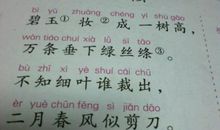 bì yù zhuāng chéng yí shù gāo
碧玉①妆②成一树高，
wàn tiáo chuí xià lǜ sī tāo
万条垂下绿丝绦③。
bù zhī xì yè shuí cái chū
不知细叶谁裁出，
èr yuè chūn fēng sì jiǎn dāo
二月春风似剪刀。